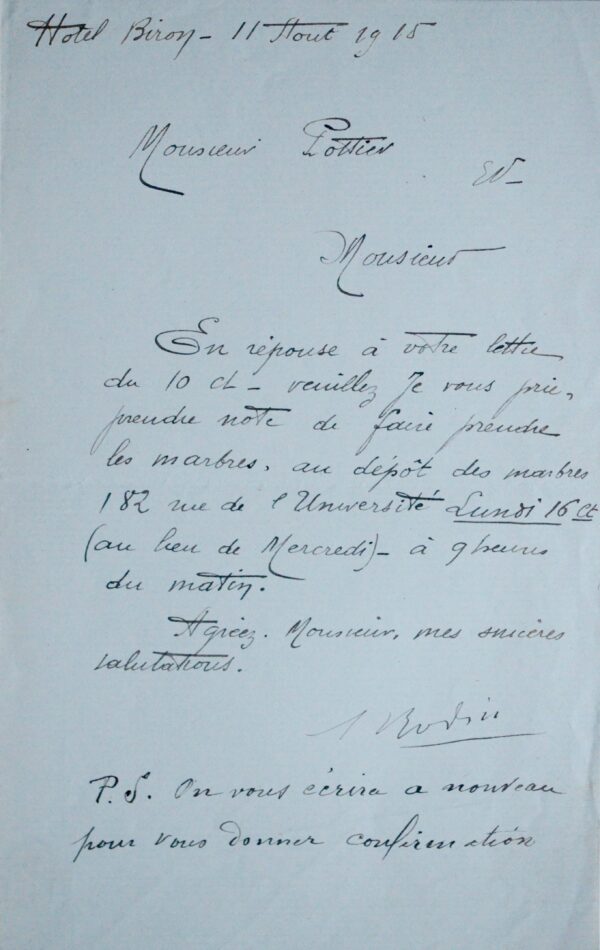 Hotel Biron - 11 Aout 1915
Monsieur Pottier
EV-
Monsieur
En réponse à votre lettre
du 10 ct - veuillez Je vous prie,
prendre note de faire prendre
les marbres, au dépôt des marbres
182 rue de l'Université Lundi 16 ct
(au lieu de Mercredi) - à 9 heures
du matin.
Agréez. Monsieur, mes sincères
salutations.
A Rodin
P.S. On vous écrira a nouveau
pour vous donner confirmation